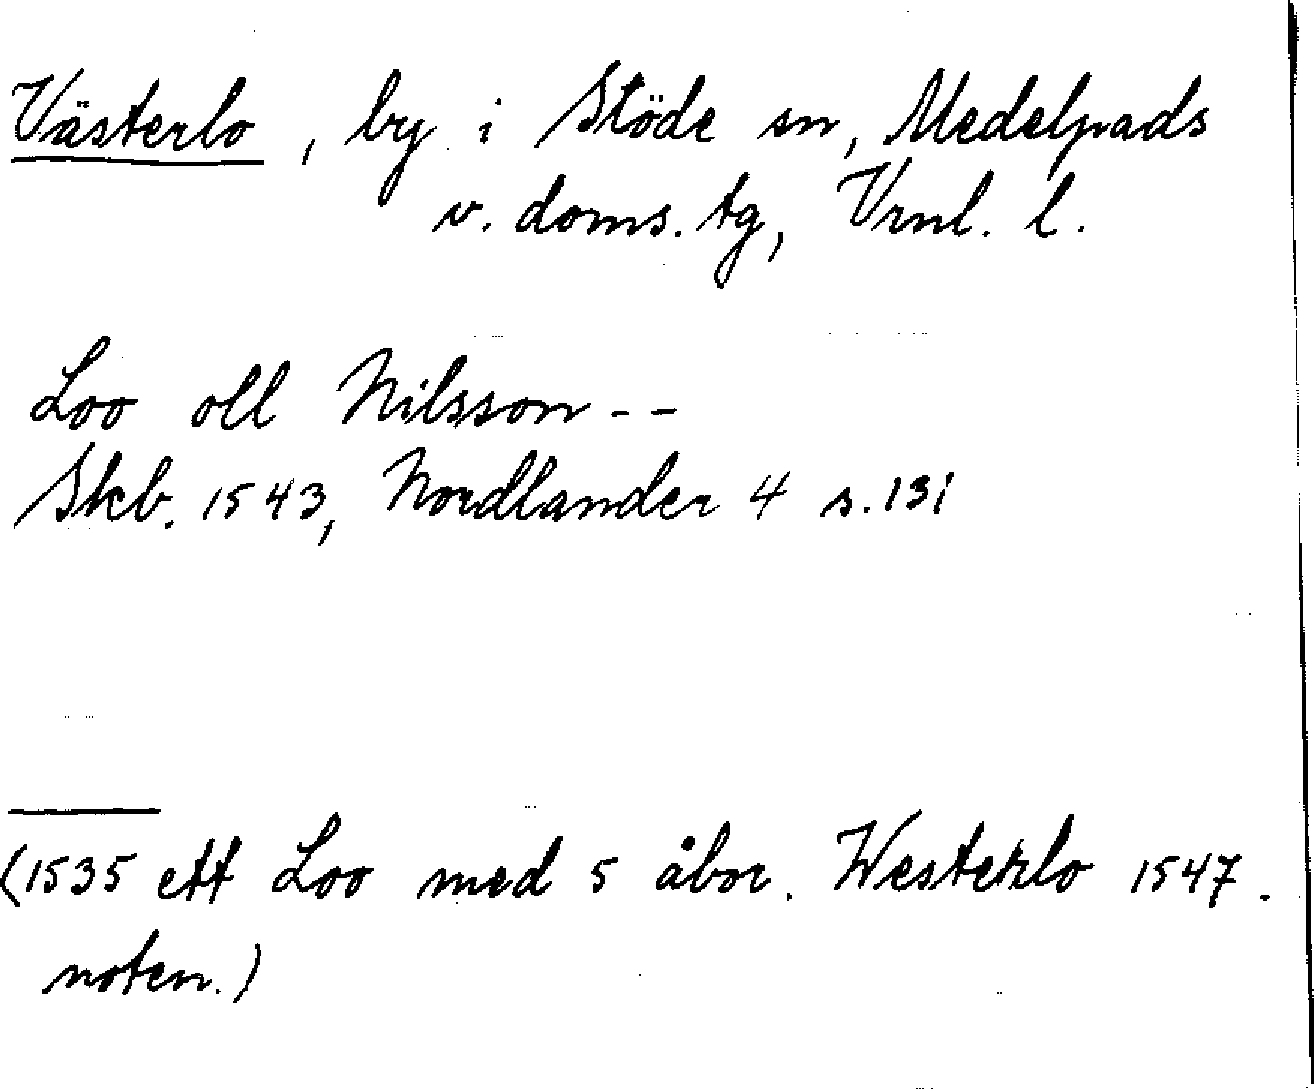 Västerlo, by i Stöde sn, Medelpads
v. doms. tg, Vrnl. l.
Loo oll Nilsson--
Skb. 1543, Nordlander 4 s. 131
(1535 ett Loo med 5 åbor. Westerlo 1547.
noten.)